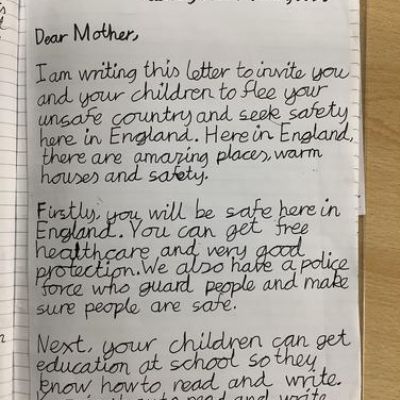 Dear Mother,
I am writing this letter to invite you
and your children to flee your
unsafe country and seek safety
here in England. Here in England,
there are amazing places, warm
houses and safety.
Firstly, you will be safe here in
England. You can get free
healthcare and very good
protection. We also have a police
force who guard people and make
sure people are safe.
Next, your children can get
education at school so they
know how to read and write.